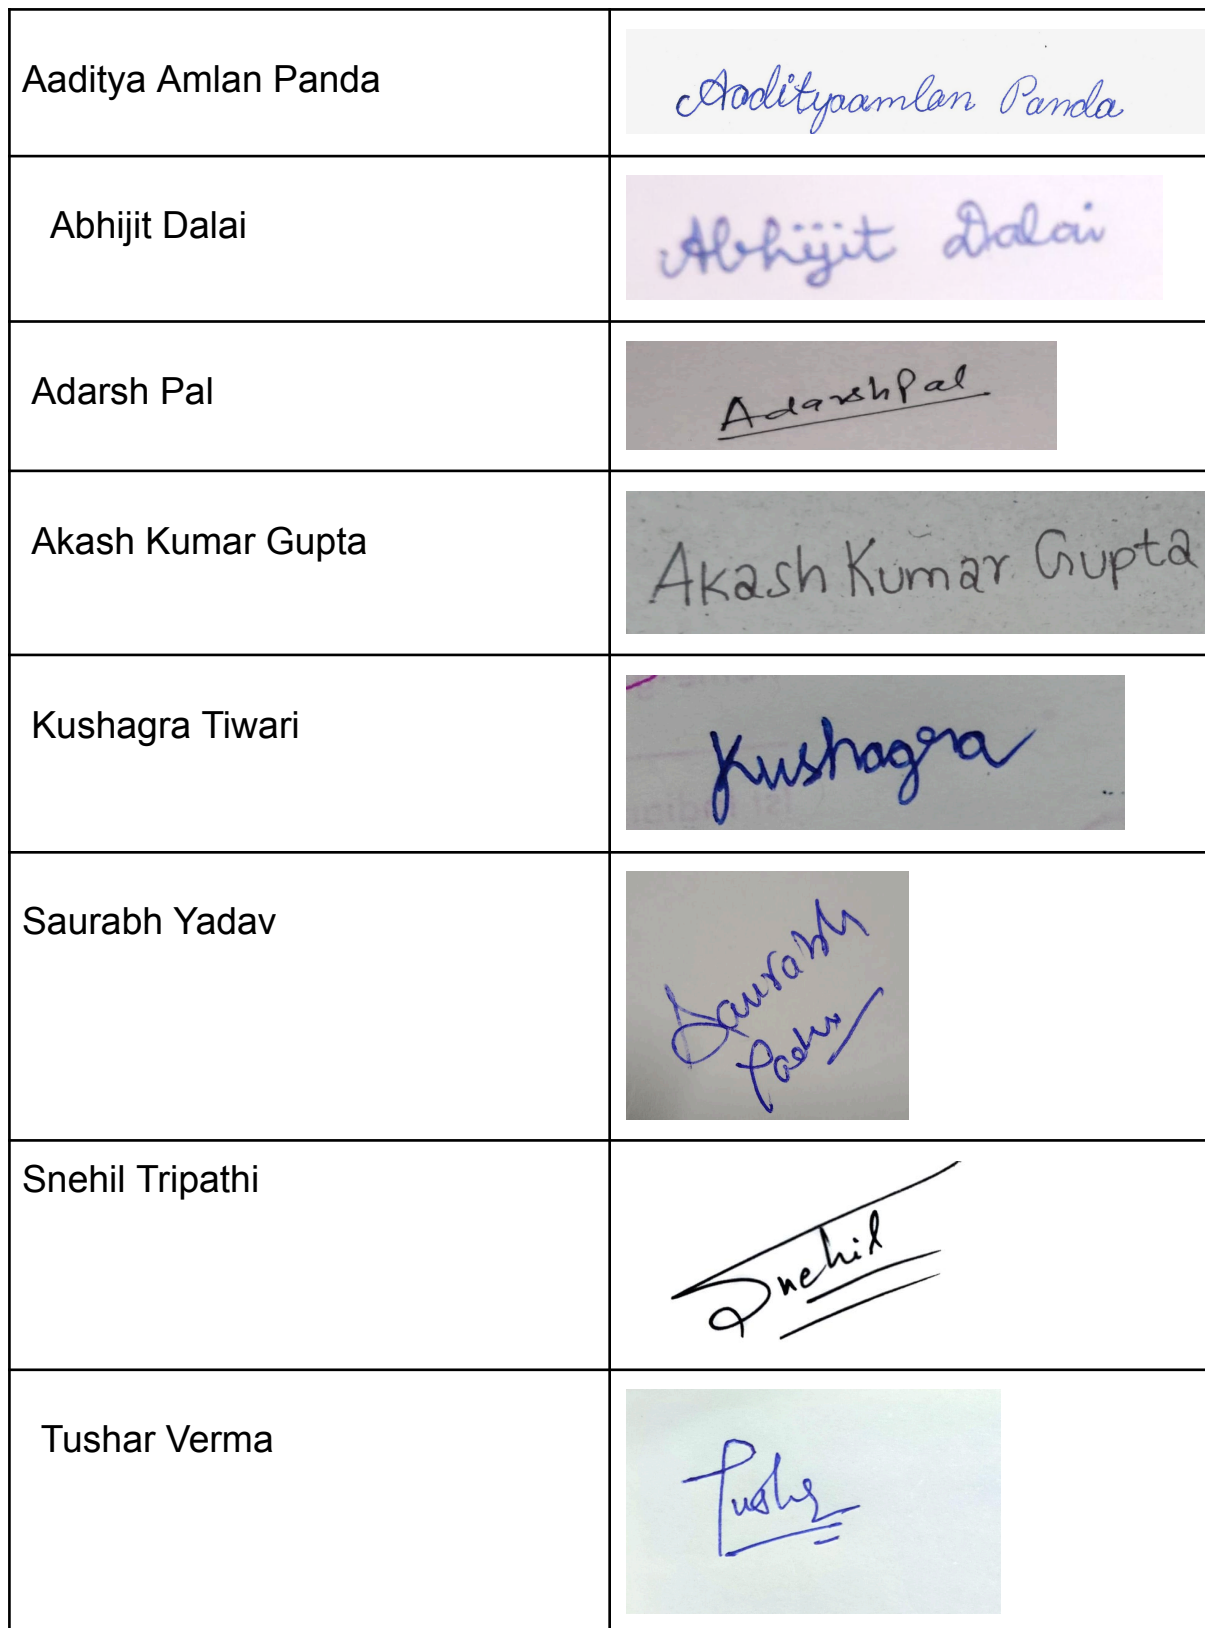 Aaditya Amlan Panda
Aadityaamlan Panda
Abhijit Dalai
Abhijit Dalai
Adarsh Pal
Adarsh Pal
Akash Kumar Gupta
Akash Kumar Gupta
Kushagra Tiwari
Kushagra
Saurabh Yadav
Saurabh
Snehil Tripathi
Snehil
Tushar Verma